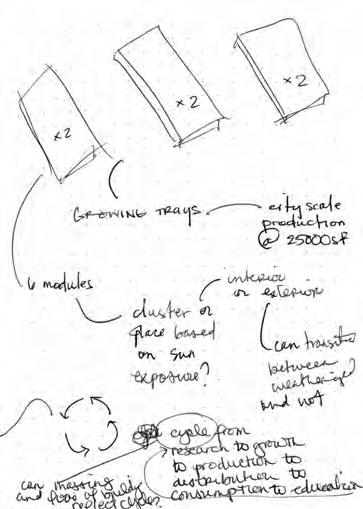 x2
x2
x2
GROWING TRAYS
city scale
production
@ 25000 SF
6 modules
cluster or
place based
on sun
exposure?
interior
or exterior
can transition
between
weatherized
and not
cycle from
research to growth
to production to
distribution to
consumption to education
can massing
and flow of building
reflect cycle?